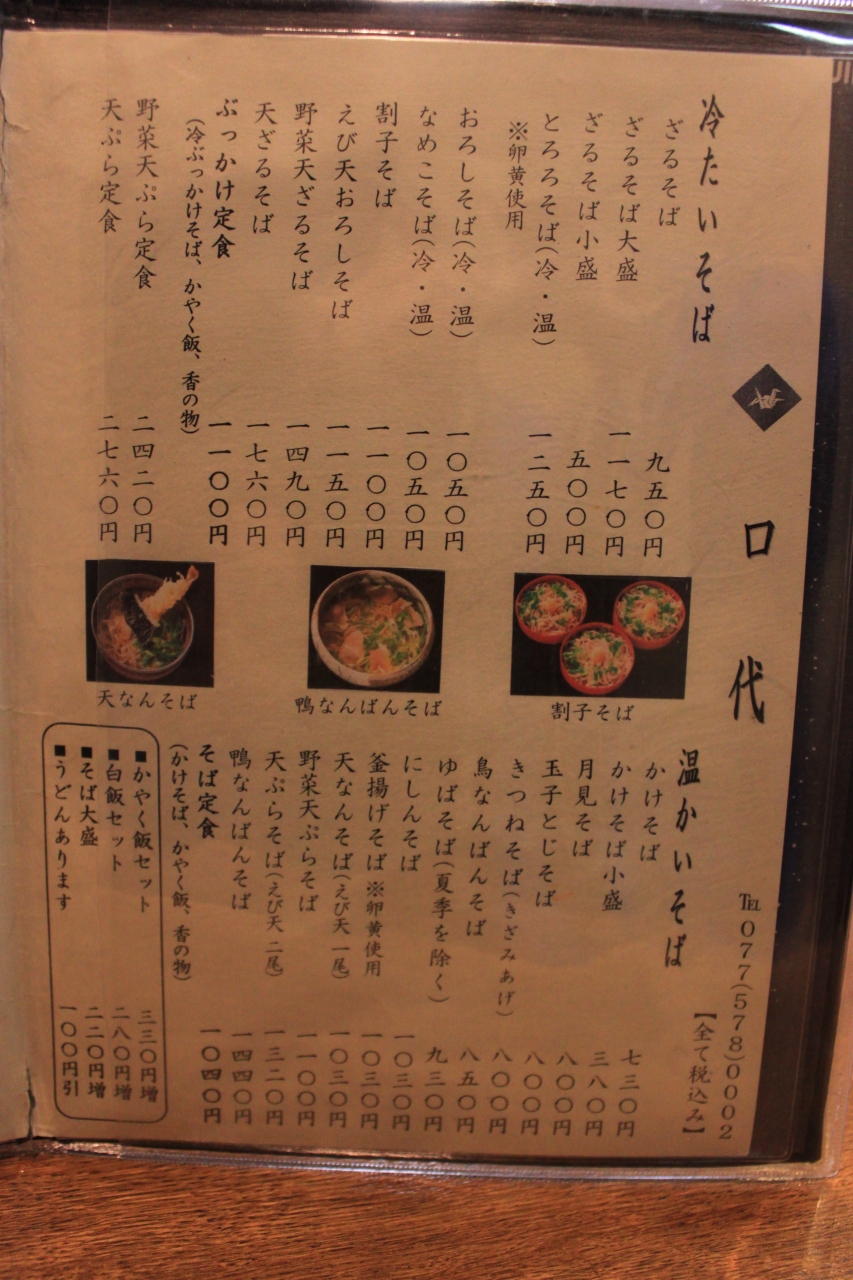 口代
TEL 077(578)0002
冷たいそば
ざるそば 九五〇円
ざるそば大盛 一一七〇円
ざるそば小盛 五〇〇円
とろろそば(冷・温) 一二五〇円
※卵黄使用
おろしそば(冷・温) 一〇五〇円
なめこそば(冷・温) 一〇五〇円
割子そば 一一〇〇円
えび天おろしそば 一一五〇円
野菜天ざるそば 一四九〇円
天ざるそば 一七六〇円
ぶっかけ定食 一一〇〇円
(冷ぶっかけそば、かやく飯、香の物)
野菜天ぷら定食 二四二〇円
天ぷら定食 二七六〇円
割子そば
鴨なんばんそば
天なんそば
【全て税込み】
温かいそば
かけそば 七三〇円
かけそば小盛 三八〇円
月見そば 八〇〇円
玉子とじそば 八〇〇円
きつねそば(きざみあげ) 八〇〇円
鳥なんばんそば 八五〇円
ゆばそば(夏季を除く) 九三〇円
にしんそば 一〇三〇円
釜揚げそば ※卵黄使用 一〇三〇円
天なんそば(えび天 一尾) 一〇三〇円
野菜天ぷらそば 一一〇〇円
天ぷらそば(えび天 二尾) 一三二〇円
鴨なんばんそば 一四四〇円
そば定食 一〇四〇円
(かけそば、かやく飯、香の物)
■かやく飯セット 三三〇円増
■白飯セット 二八〇円増
■そば大盛 二二〇円増
■うどんあります 一〇〇円引